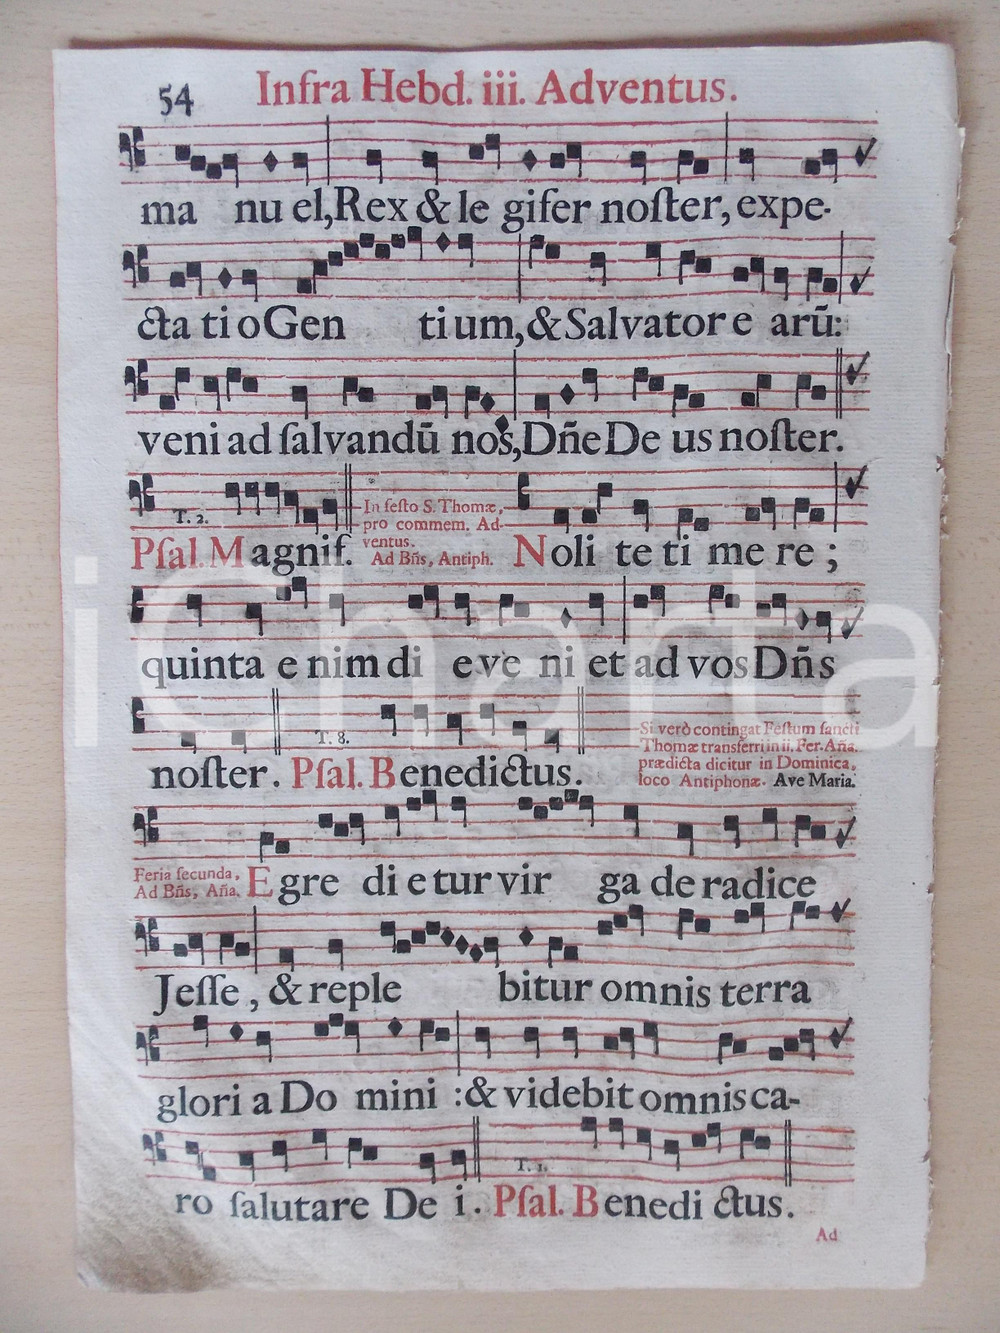 54 Infra Hebd. iii. Adventus.
ma nu el, Rex & le gifer noſter, expe-
cta ti o Gen ti um, & Salvator e arū:
veni ad ſalvandū nos, Dñe De us noſter.
T. 2.
In feſto S. Thomæ,
pro commem. Ad-
ventus.
Ad Bñs, Antiph.
Pſal. M agnif. N oli te ti me re ;
quinta e nim di e ve ni et ad vos Dñs
T. 8.
Si verò contingat Feſtum ſancti
Thomæ transferri in ii. Fer. Aña.
prædicta dicitur in Dominica,
loco Antiphonæ. Ave Maria.
noſter. Pſal. B enedictus.
Feria ſecunda,
Ad Bñs, Aña.
E gre di e tur vir ga de radice
Jeſſe, & reple bitur omnis terra
glori a Do mini : & videbit omnis ca-
T. 1.
ro ſalutare De i. Pſal. B enedi ctus.
Ad
iCharta